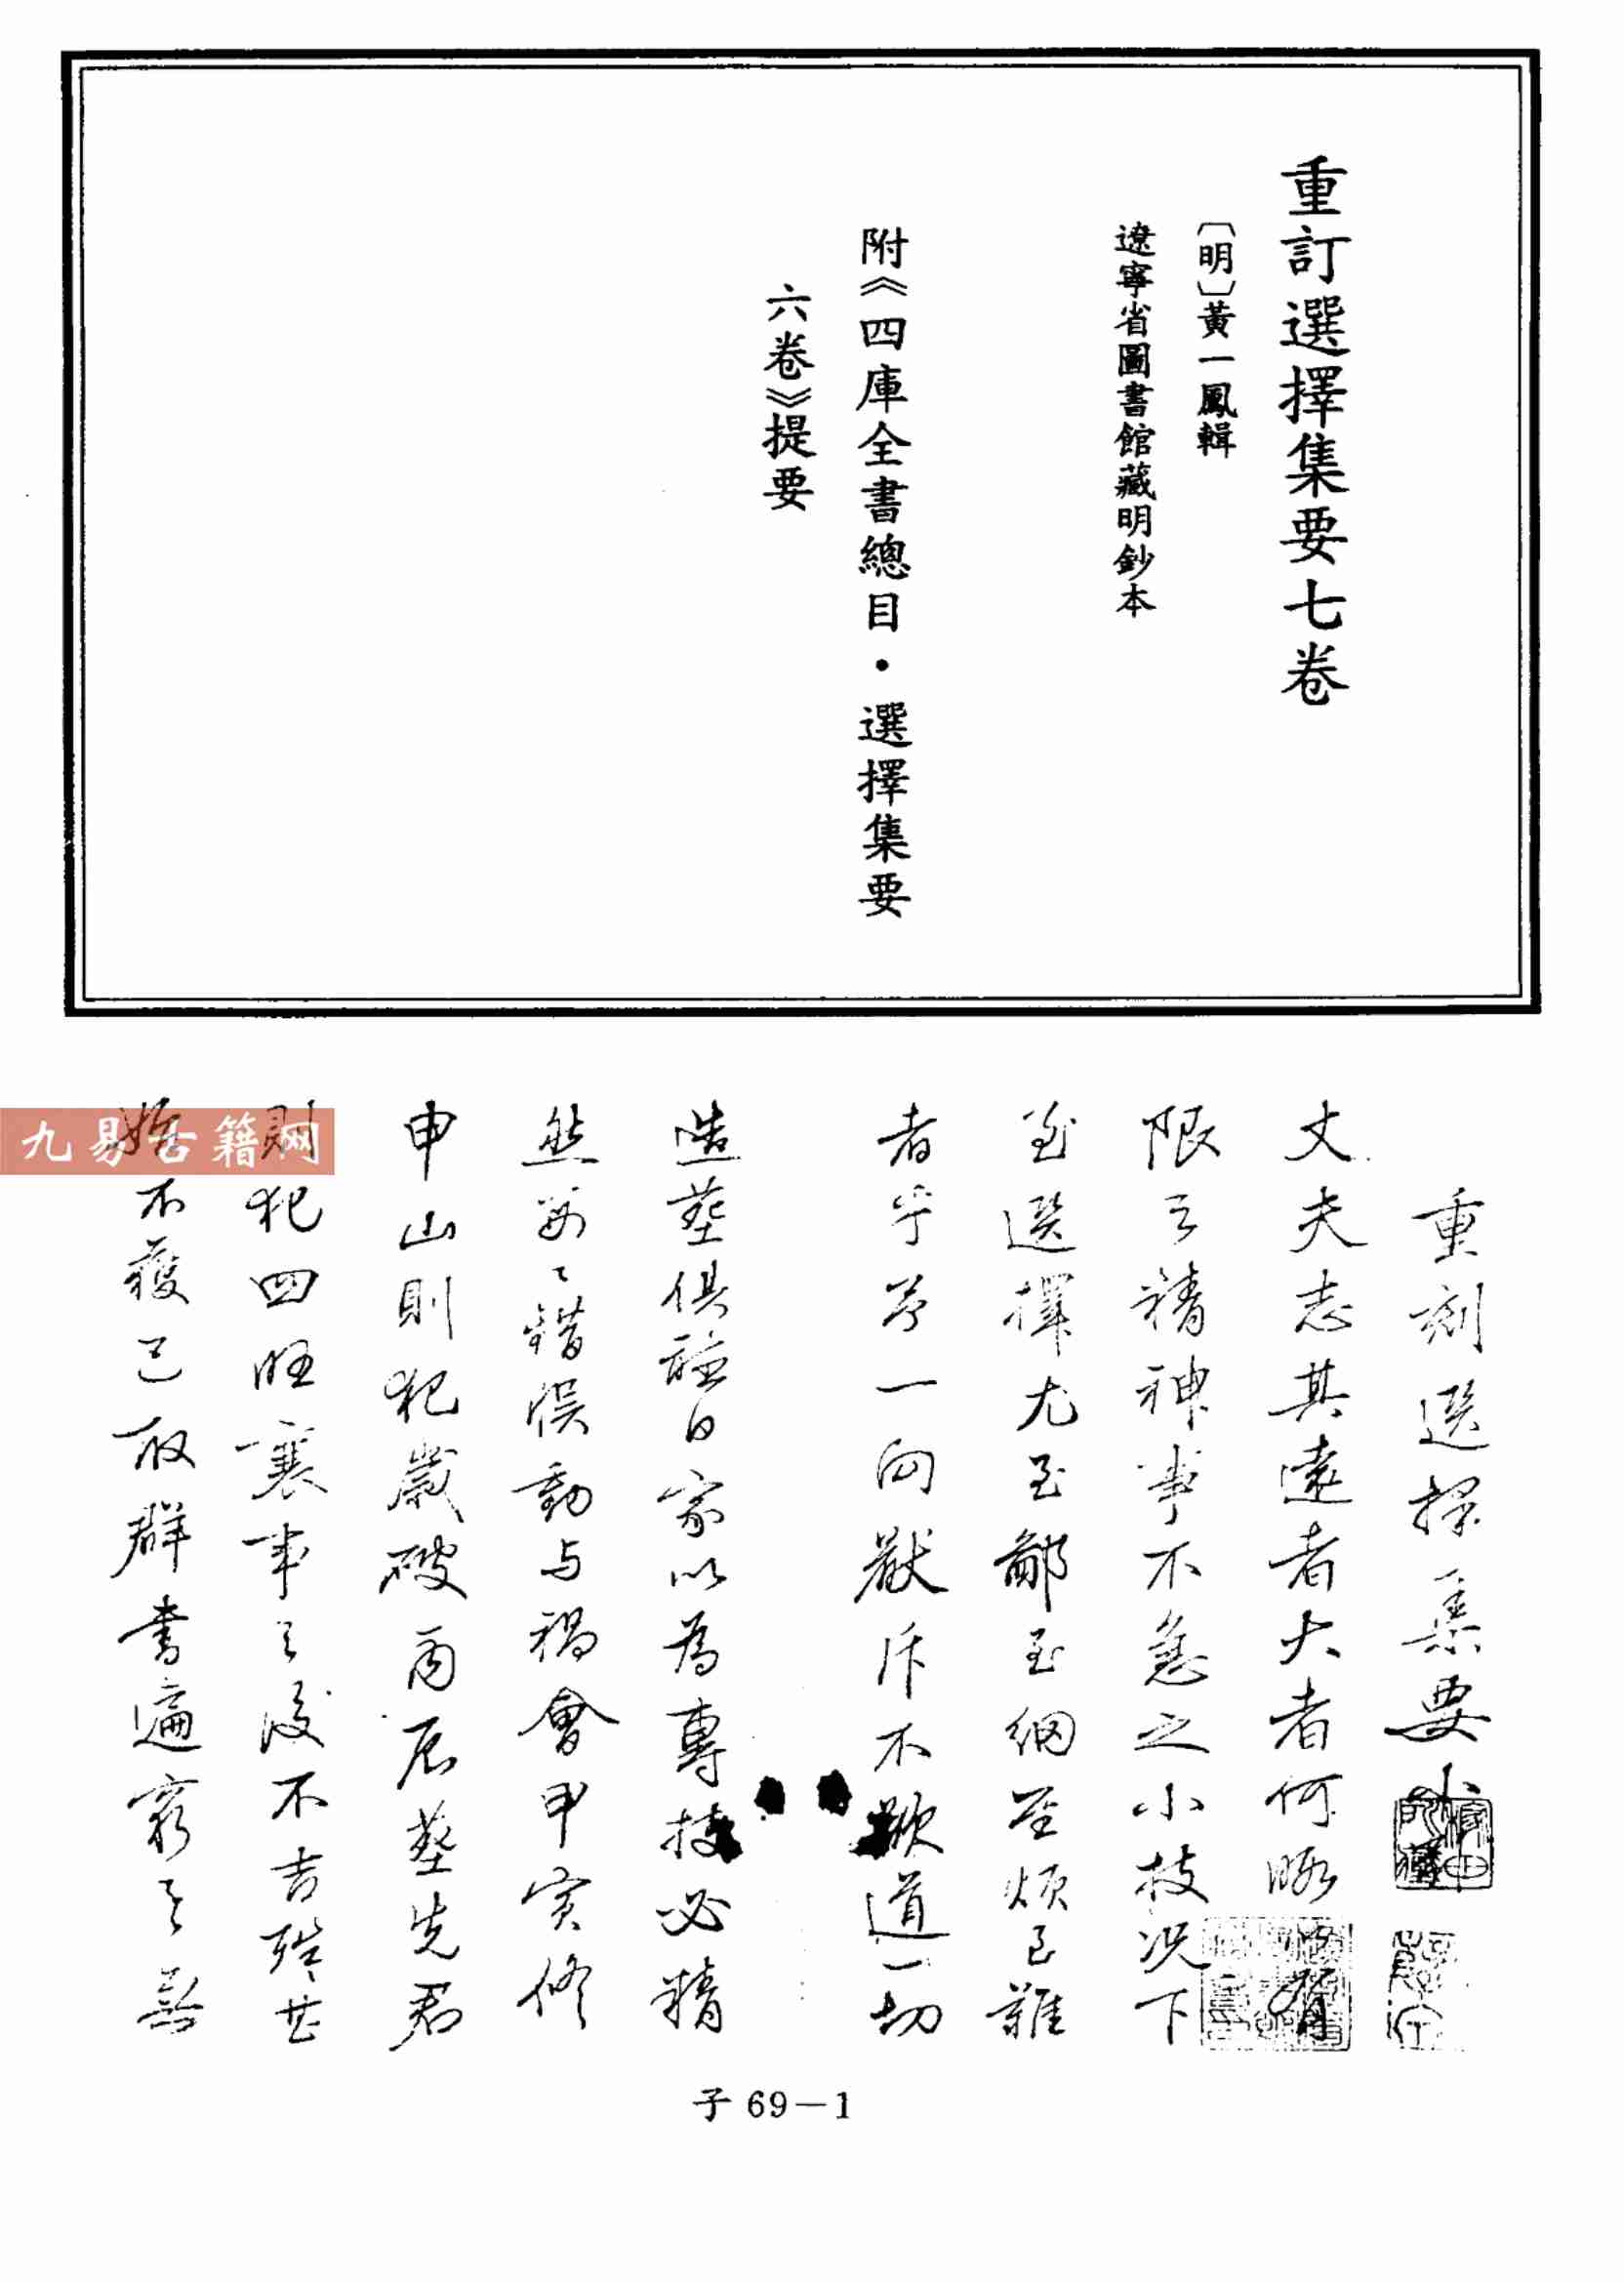 重訂選擇集要七卷
〔明〕黃一鳳輯
遼寧省圖書館藏明鈔本
附《四庫全書總目·選擇集要
六卷》提要
重刻選擇集要小
丈夫志其遠者大者何暇以有
限之精神事不急之小技况下
至選擇尤至鄙至細至煩且難
者乎予一向厭斥不歡道一切
造葬俱聽日家以為專技必精
然每每錯悮動与禍會甲寅修
申山則犯歲破丙辰葬先君
則犯四旺襄事之後不吉殊甚
始不獲已取群書遍窮之無
九易古籍网
子69—1